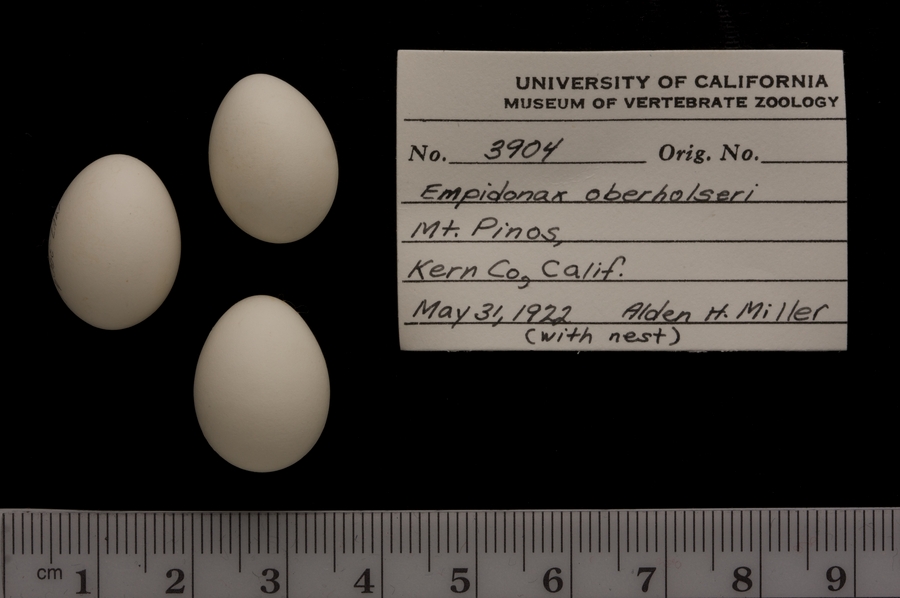 UNIVERSITY OF CALIFORNIA
MUSEUM OF VERTEBRATE ZOOLOGY
No. 3904 Orig. No.
Empidonax oberholseri
Mt. Pinos,
Kern Co, Calif.
May 31, 1922 Alden H. Miller
(with nest)
cm 1 2 3 4 5 6 7 8 9